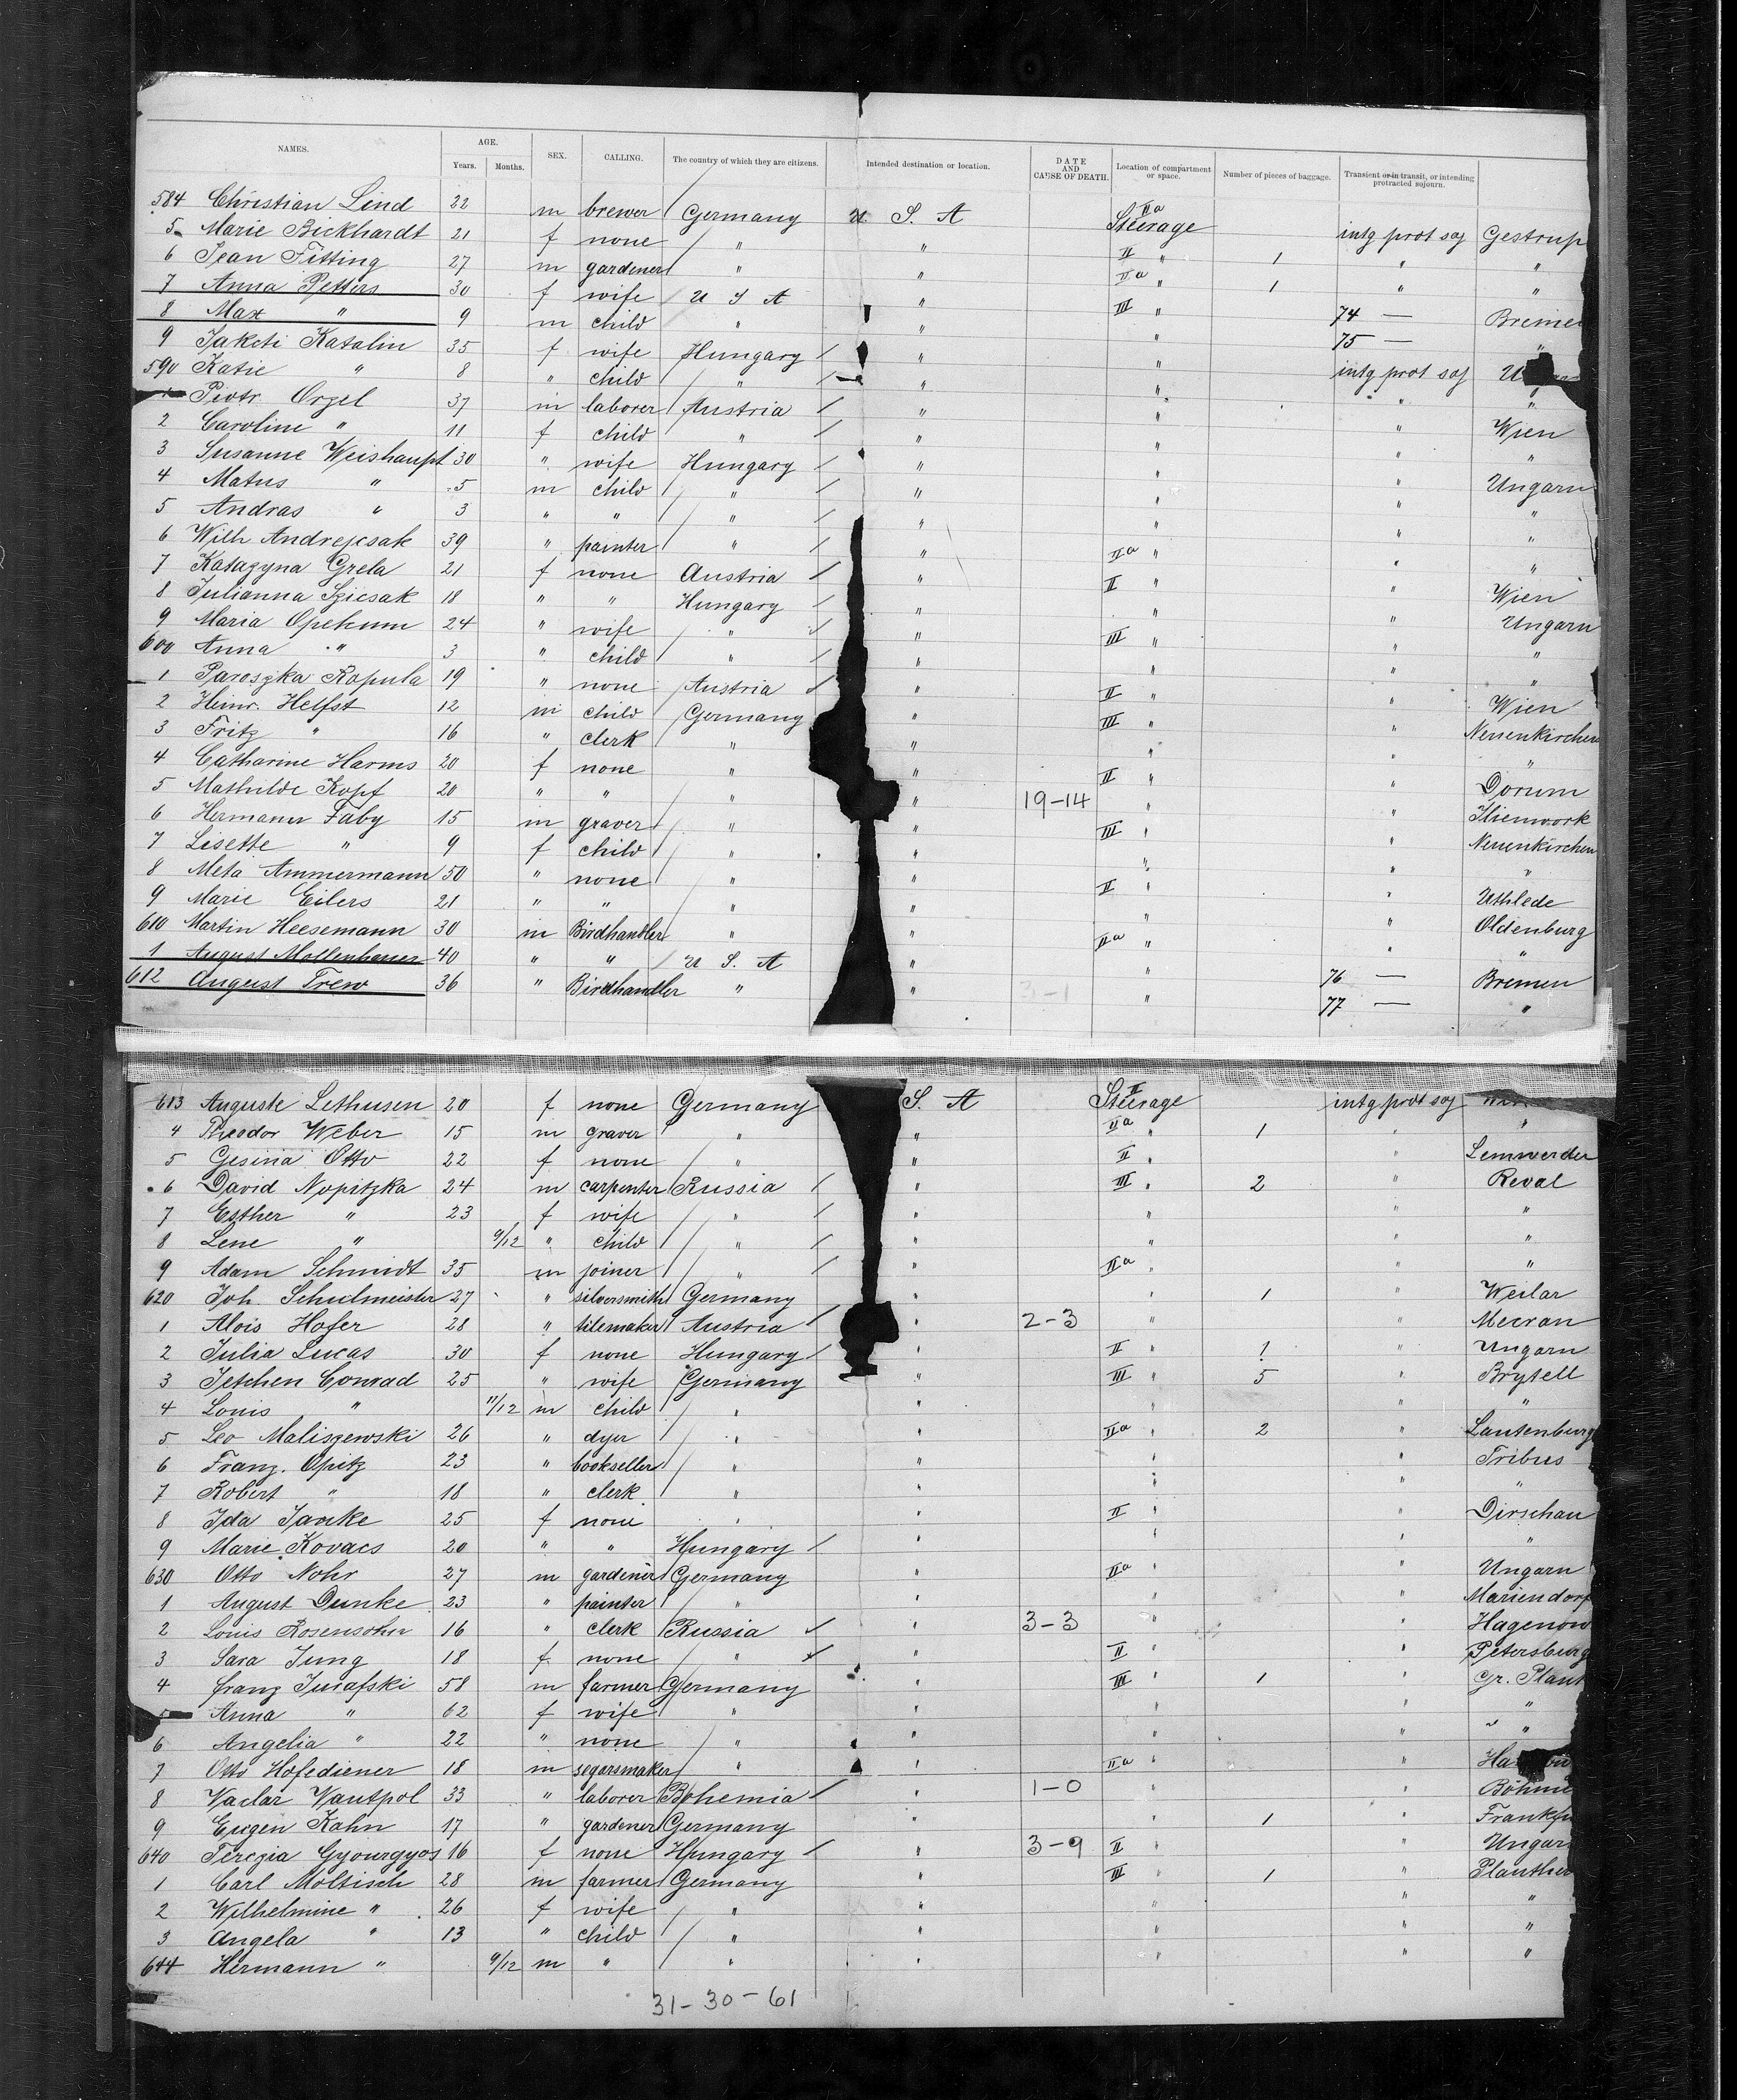 NAMES. AGE. Years. Months. SEX. CALLING. The country of which they are citizens. Intended destination or location. DATE AND CAUSE OF DEATH. Location of compartment or space. Number of pieces of baggage. Transient or in transit, or intending protracted sojourn.
584 Christian Lind 22 m brewer Germany U. S. A IIa Steerage intg prot soj Gestrup
5 Marie Bickhardt 21 f none " " II " 1 " "
6 Jean Fitting 27 m gardener " " IIa " 1 " "
7 Anna Petters 30 f wife U S A " III " 74 — Bremen
8 Max " 9 m child " " " 75 — "
9 Jakcti Katalin 35 f wife Hungary " " intg prot soj
590 Katie " 8 " child " " " " "
Piotr Orgel 37 m laborer Austria " " " Wien
2 Caroline " 11 f child " " " " "
3 Susanne Weishaupt 30 " wife Hungary " " " Ungarn
4 Matus " 5 m child " " " " "
5 Andras " 3 " " " " " " "
6 Wilh Andrejcsak 39 " painter " " IIa " " "
7 Katazyna Grela 21 f none Austria " II " " Wien
8 Julianna Szicsak 18 " " Hungary " " " Ungarn
9 Maria Opekum 24 " wife " " III " " "
600 Anna " 3 " child " " " " "
1 Paroszka Ropula 19 " none Austria " II " " Wien
2 Heinr. Helfst 12 m child Germany " III " Neuenkirchen
3 Fritz " 16 " clerk " " " " "
4 Catharine Harms 20 f none " " II " " Dorum
5 Mathilde Kopf 20 " " " " 19-14 " " Ihienwork
6 Hermann Faby 15 m graver " " III " " Neuenkirchen
7 Lisette " 9 f child " " " " "
8 Meta Ammermann 50 " none " " II " " Uthlede
9 Marie Eilers 21 " " " " " " Oldenburg
610 Martin Heesemann 30 m Birdhandler " " IIa " " "
1 August Mollenhauer 40 " " U S. A " " 76 — Bremen
612 August Trew 36 " Birdhandler " " 3-1 " 77 — "
613 Auguste Lethusen 20 f none Germany S. A II Steerage intg prot soj
4 Theodor Weber 15 m graver " " IIa " 1 " "
5 Gesina Otto 22 f none " " II " " Lemwerder
6 David Nopitzka 24 m carpenter Russia " III " 2 " Reval
7 Esther " 23 f wife " " " " "
8 Lene " 9/12 " child " " " " "
9 Adam Schmidt 35 m joiner " " IIa " " "
620 Joh. Schulmeister 27 " silversmith Germany " " 1 " Weilar
1 Alois Hofer 28 " tilemaker Austria " 2-3 " " Meeran
2 Julia Lucas 30 f none Hungary " II " 1 " Ungarn
3 Jetchen Conrad 25 " wife Germany " III " 5 " Brytell
4 Louis " 11/12 m child " " " " "
5 Leo Maliszewski 26 " dyer " " IIa " 2 " Lautenburg
6 Franz. Opitz 23 " bookseller " " " " Tribus
7 Robert " 18 " clerk " " " " "
8 Ida Janke 25 f none " " II " " Dirschau
9 Marie Kovacs 20 " " Hungary " " " "
630 Otto Nohr 27 m gardener Germany " IIa " " Ungarn
1 August Dunke 23 " painter " " " " Mariendorf
2 Louis Rosensohn 16 " clerk Russia " 3-3 " " Hagenow
3 Sara Jung 18 f none " " II " " Petersburg
4 Franz Jurafski 58 m farmer Germany " III " 1 " Gr. Plaut
Anna " 62 f wife " " " " "
6 Angelia " 22 " none " " " " "
7 Otto Hofediener 18 m segarsmaker " " IIa " "
8 Vaclar Vantpol 33 " laborer Bohemia " 1-0 " "
9 Eugen Kahn 17 " gardener Germany " " 1 "
640 Terezia Gyourgyos 16 f none Hungary " 3-9 II " " Ungar
1 Carl Moltisch 28 m farmer Germany " III " 1 "
2 Wilhelmine " 26 f wife " " " " "
3 Angela " 13 " child " " " " "
644 Hermann " 9/12 m " " " " " "
31-30-61